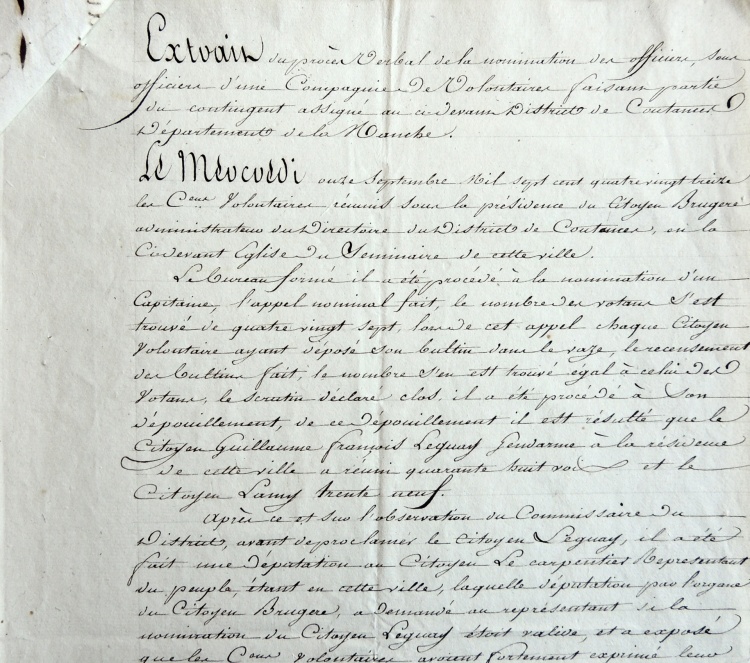 Extrait du procès Verbal de la nomination des officiers, sous
officiers d'une Compagnie de Volontaires faisant partie
du contingent assigné au ci-devant District de Coutances
Département de la Manche.
Le Mercredi onze Septembre Mil sept cent quatre vingt treize
les Cens Volontaires réunis sous la présidence du Citoyen Brugere
administrateur du Directoire du District de Coutances, en la
Cidevant Eglise du Seminaire de cette ville.
Le bureau formé il a été procédé à la nomination d'un
Capitaine, l'appel nominal fait, le nombre des votans s'est
trouvé de quatre vingt sept, lors de cet appel chaque Citoyen
Volontaire ayant déposé son bultin dans le vaze, le recensement
des bultins fait, le nombre s'en est trouvé égal à celui des
Votans, le scrutin déclaré clos, il a été procédé à son
dépouillement, de ce dépouillement il est résulté que le
Citoyen Guillaume françois Leguay Gendarme à la résidence
de cette ville a réuni quarante huit voix et le
Citoyen Lamy trente neuf.
Après ce et sur l'observation du Commissaire du
District, avant de proclamer le Citoyen Leguay, il a été
fait une députation au Citoyen Le carpentier Représentant
du peuple, étant en cette ville, laquelle députation par l'organe
du Citoyen Brugere, a demandé au représentant si la
nomination du Citoyen Leguay était valide, et a exposé
que les Cens Volontaires avaient fortement exprimé leur